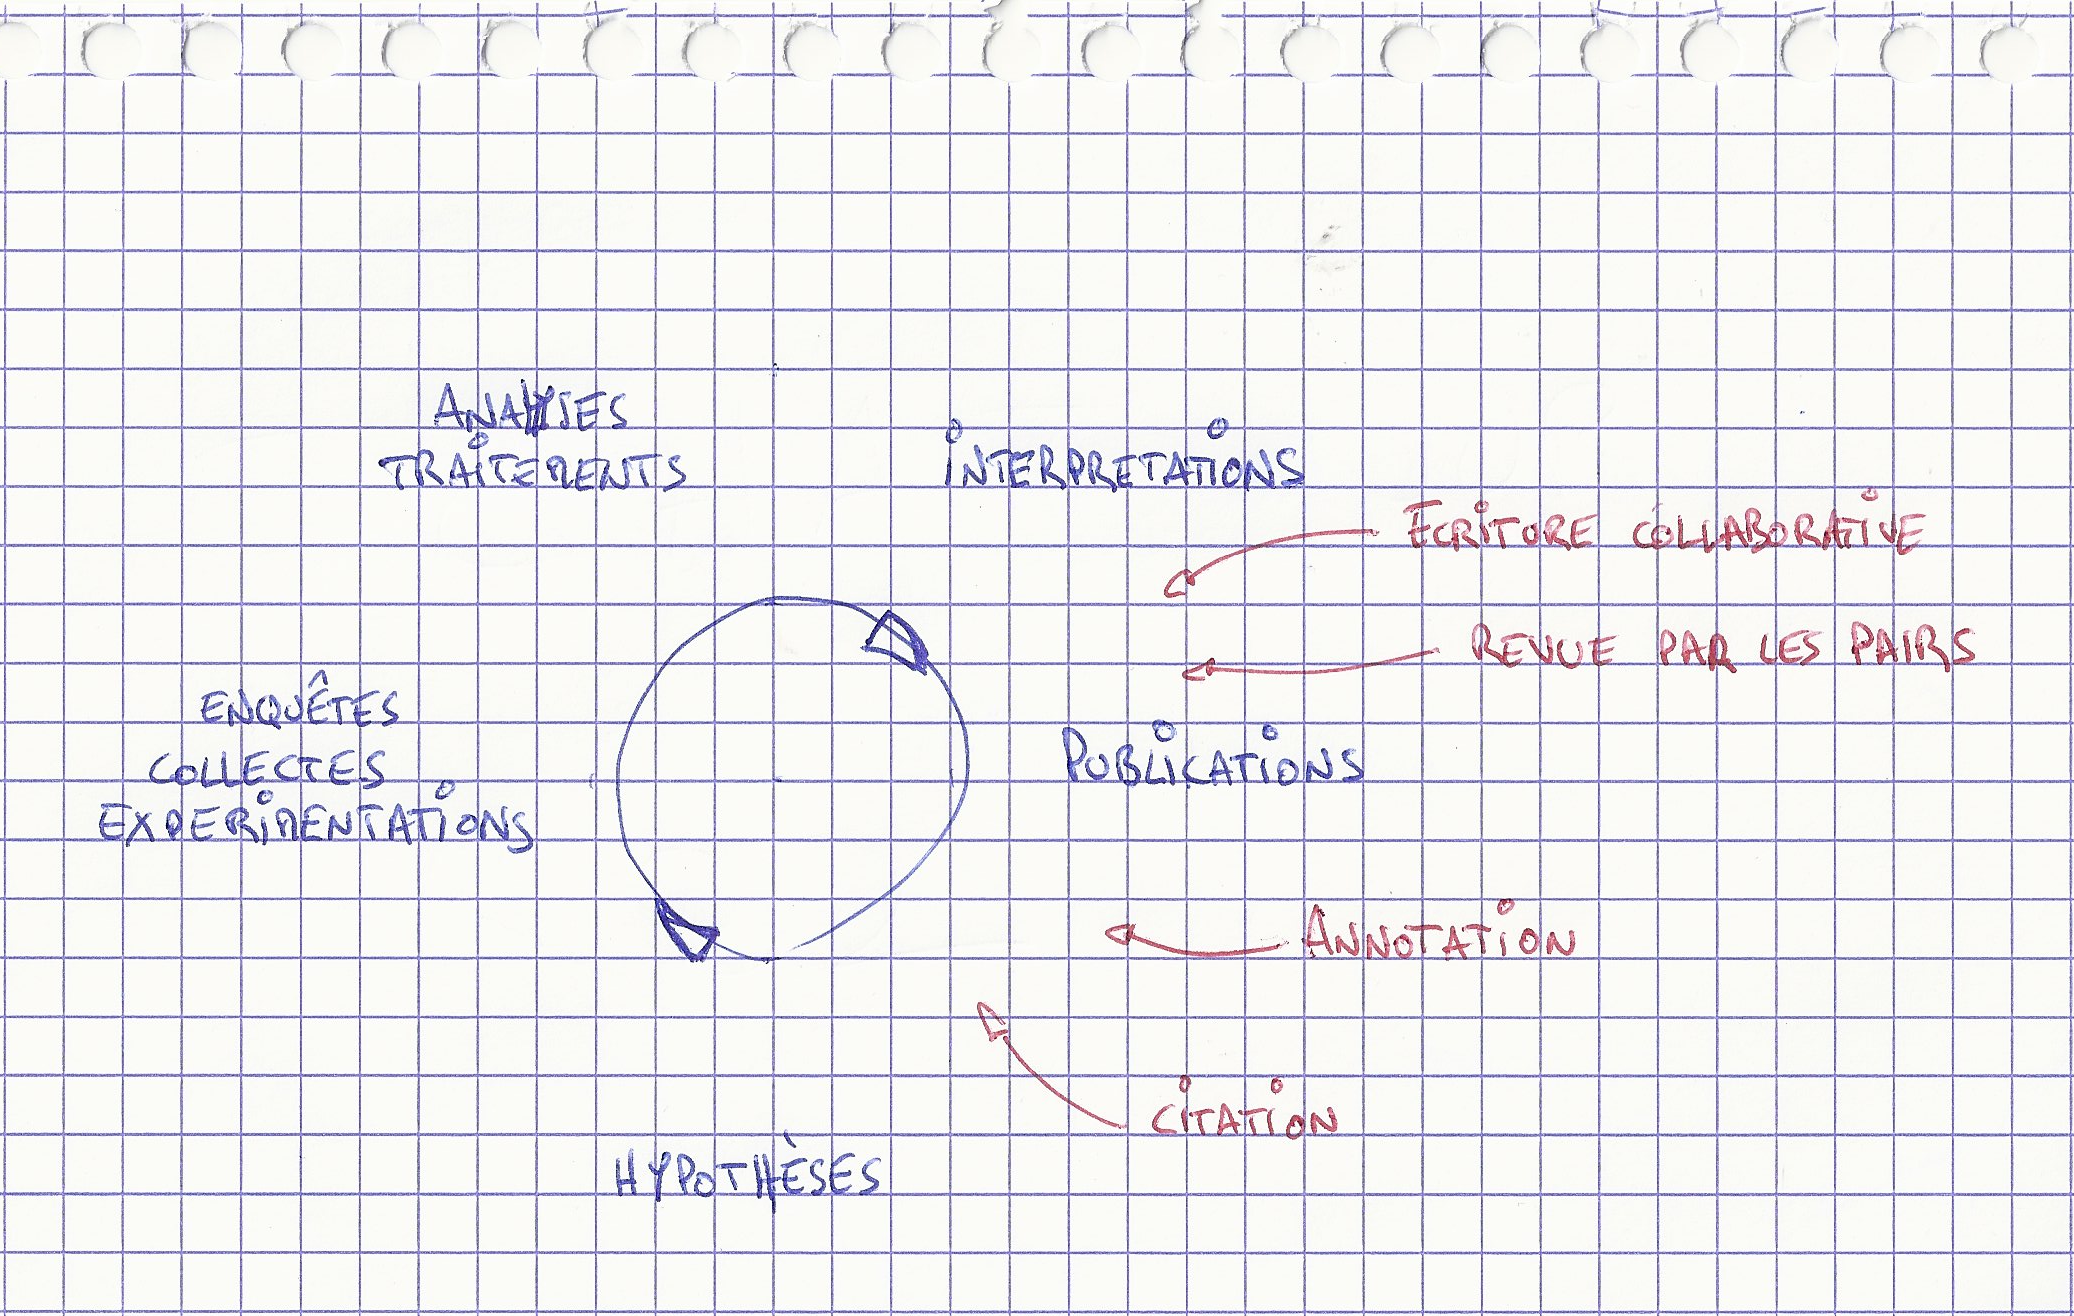 ANALYSES
TRAITEMENTS
INTERPRETATIONS
ECRITURE COLLABORATIVE
REVUE PAR LES PAIRS
ENQUÊTES
COLLECTES
EXPERIMENTATIONS
PUBLICATIONS
ANNOTATION
CITATION
HYPOTHÈSES